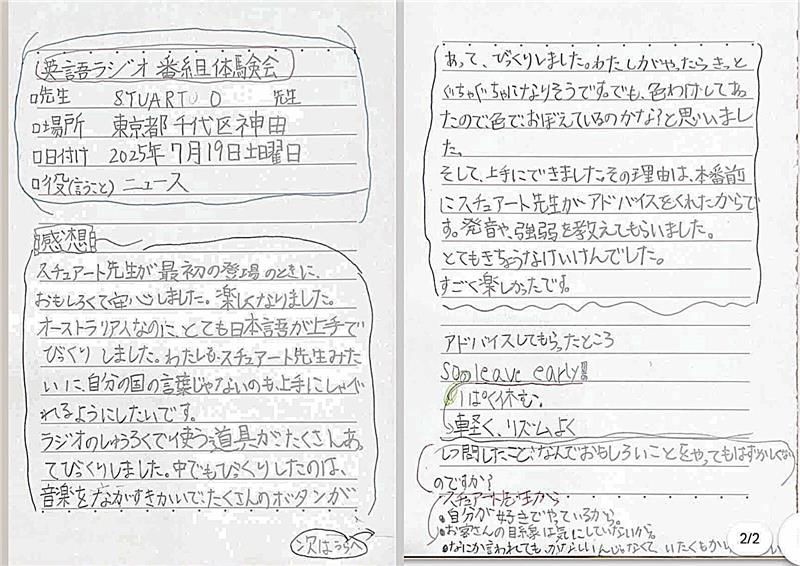 英語ラジオ番組体験会
先生 STUART O 先生
場所 東京都千代区神田
日付け 2025年7月19日土曜日
役(言うこと) ニュース
感想
スチュアート先生が最初の登場のときに、
おもしろくて安心しました。楽しくなりました。
オーストラリア人なのに、とても日本語が上手で
びっくりしました。わたしも、スチュアート先生みた
いに自分の国の言葉じゃないのも、上手にしゃべ
れるようにしたいです。
ラジオのしゅうろくで使う道具がたくさんあっ
てびっくりしました。中でもびっくりしたのは、
音楽をながすきかいで、たくさんのボタンが
次はうらへ
あって、びっくりしました。わたしがやったらきっと
ぐちゃぐちゃになりそうです。でも、色わけしてあっ
たので、色で、おぼえているのかな?と思いまし
た。
そして、上手にできました。その理由は、本番前
にスチュアート先生がアドバイスをくれたからで
す。発音や、強弱を教えてもらいました。
とてもきちょうなけいけんでした。
すごく楽しかったです。
アドバイスしてもらったところ
so leave early!
1ぱく休む、
軽く、リズムよく
しつ問したこと、なんでおもしろいことをやってもはずかしくない
のですか?
スチュアート先生から
・自分が好きでやっているから。
・お客さんの目線は気にしていないから。
・なにか言われても、かなしいんじゃなくて、いたくもかゆ
2/2